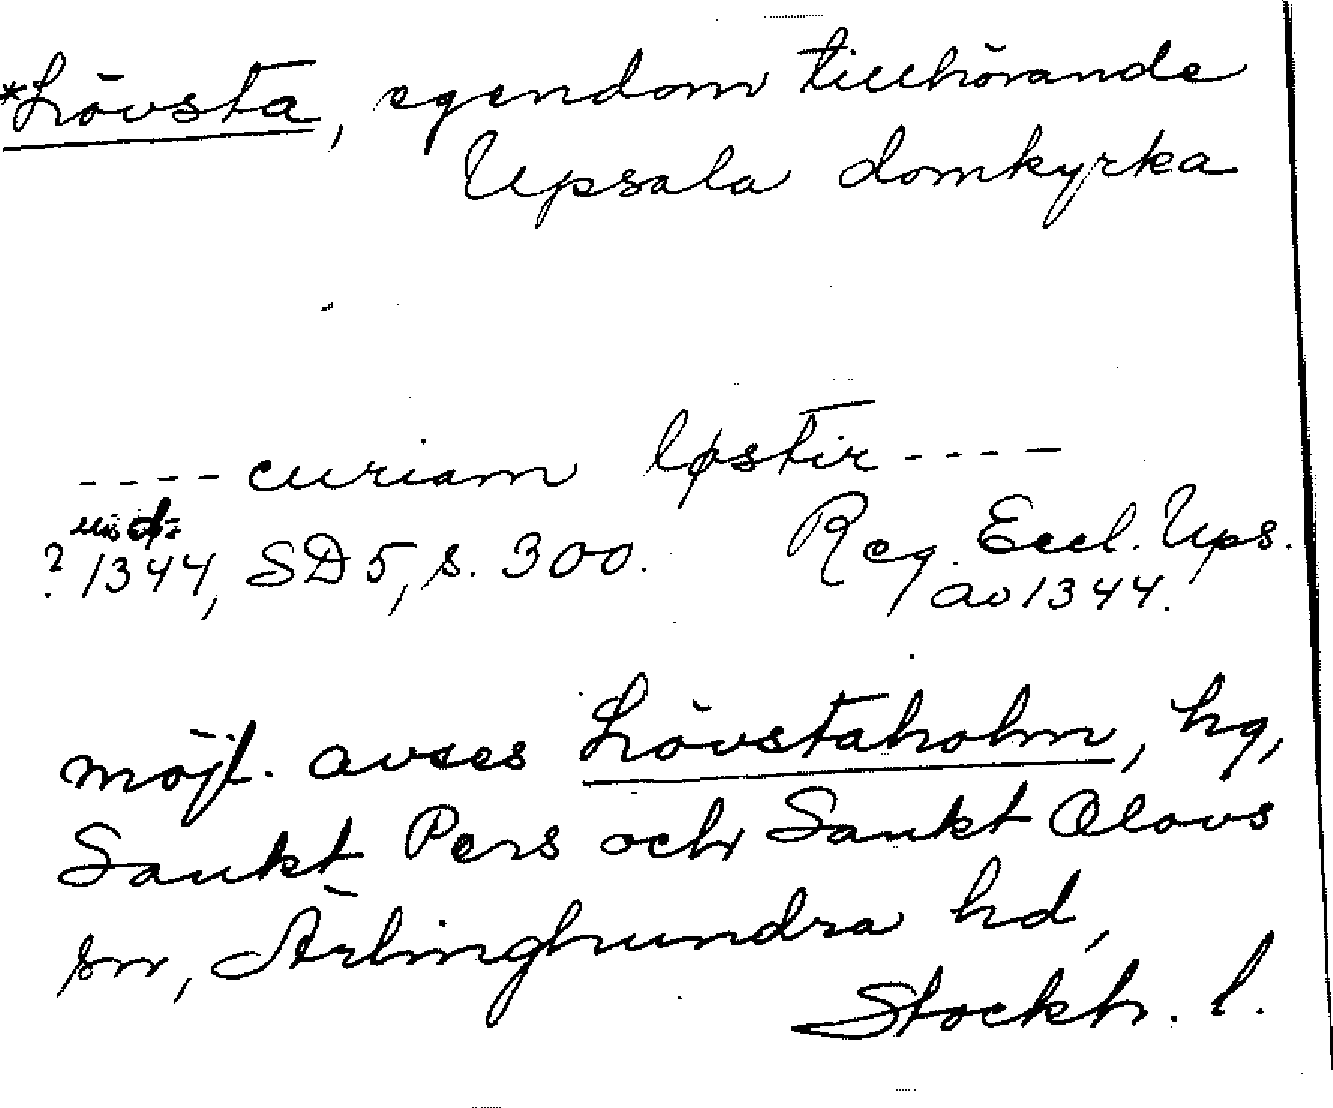 *Lövsta, egendom tillhörande
Upsala domkyrka
---- curiam løstir ----
? 1344, SD 5, s. 300. Reg. Eccl. Ups.
av 1344.
möjl. avses Lövstaholm, hg,
Sankt Pers och Sankt Olovs
sn, Ärlinghundra hd,
Stockh. l.